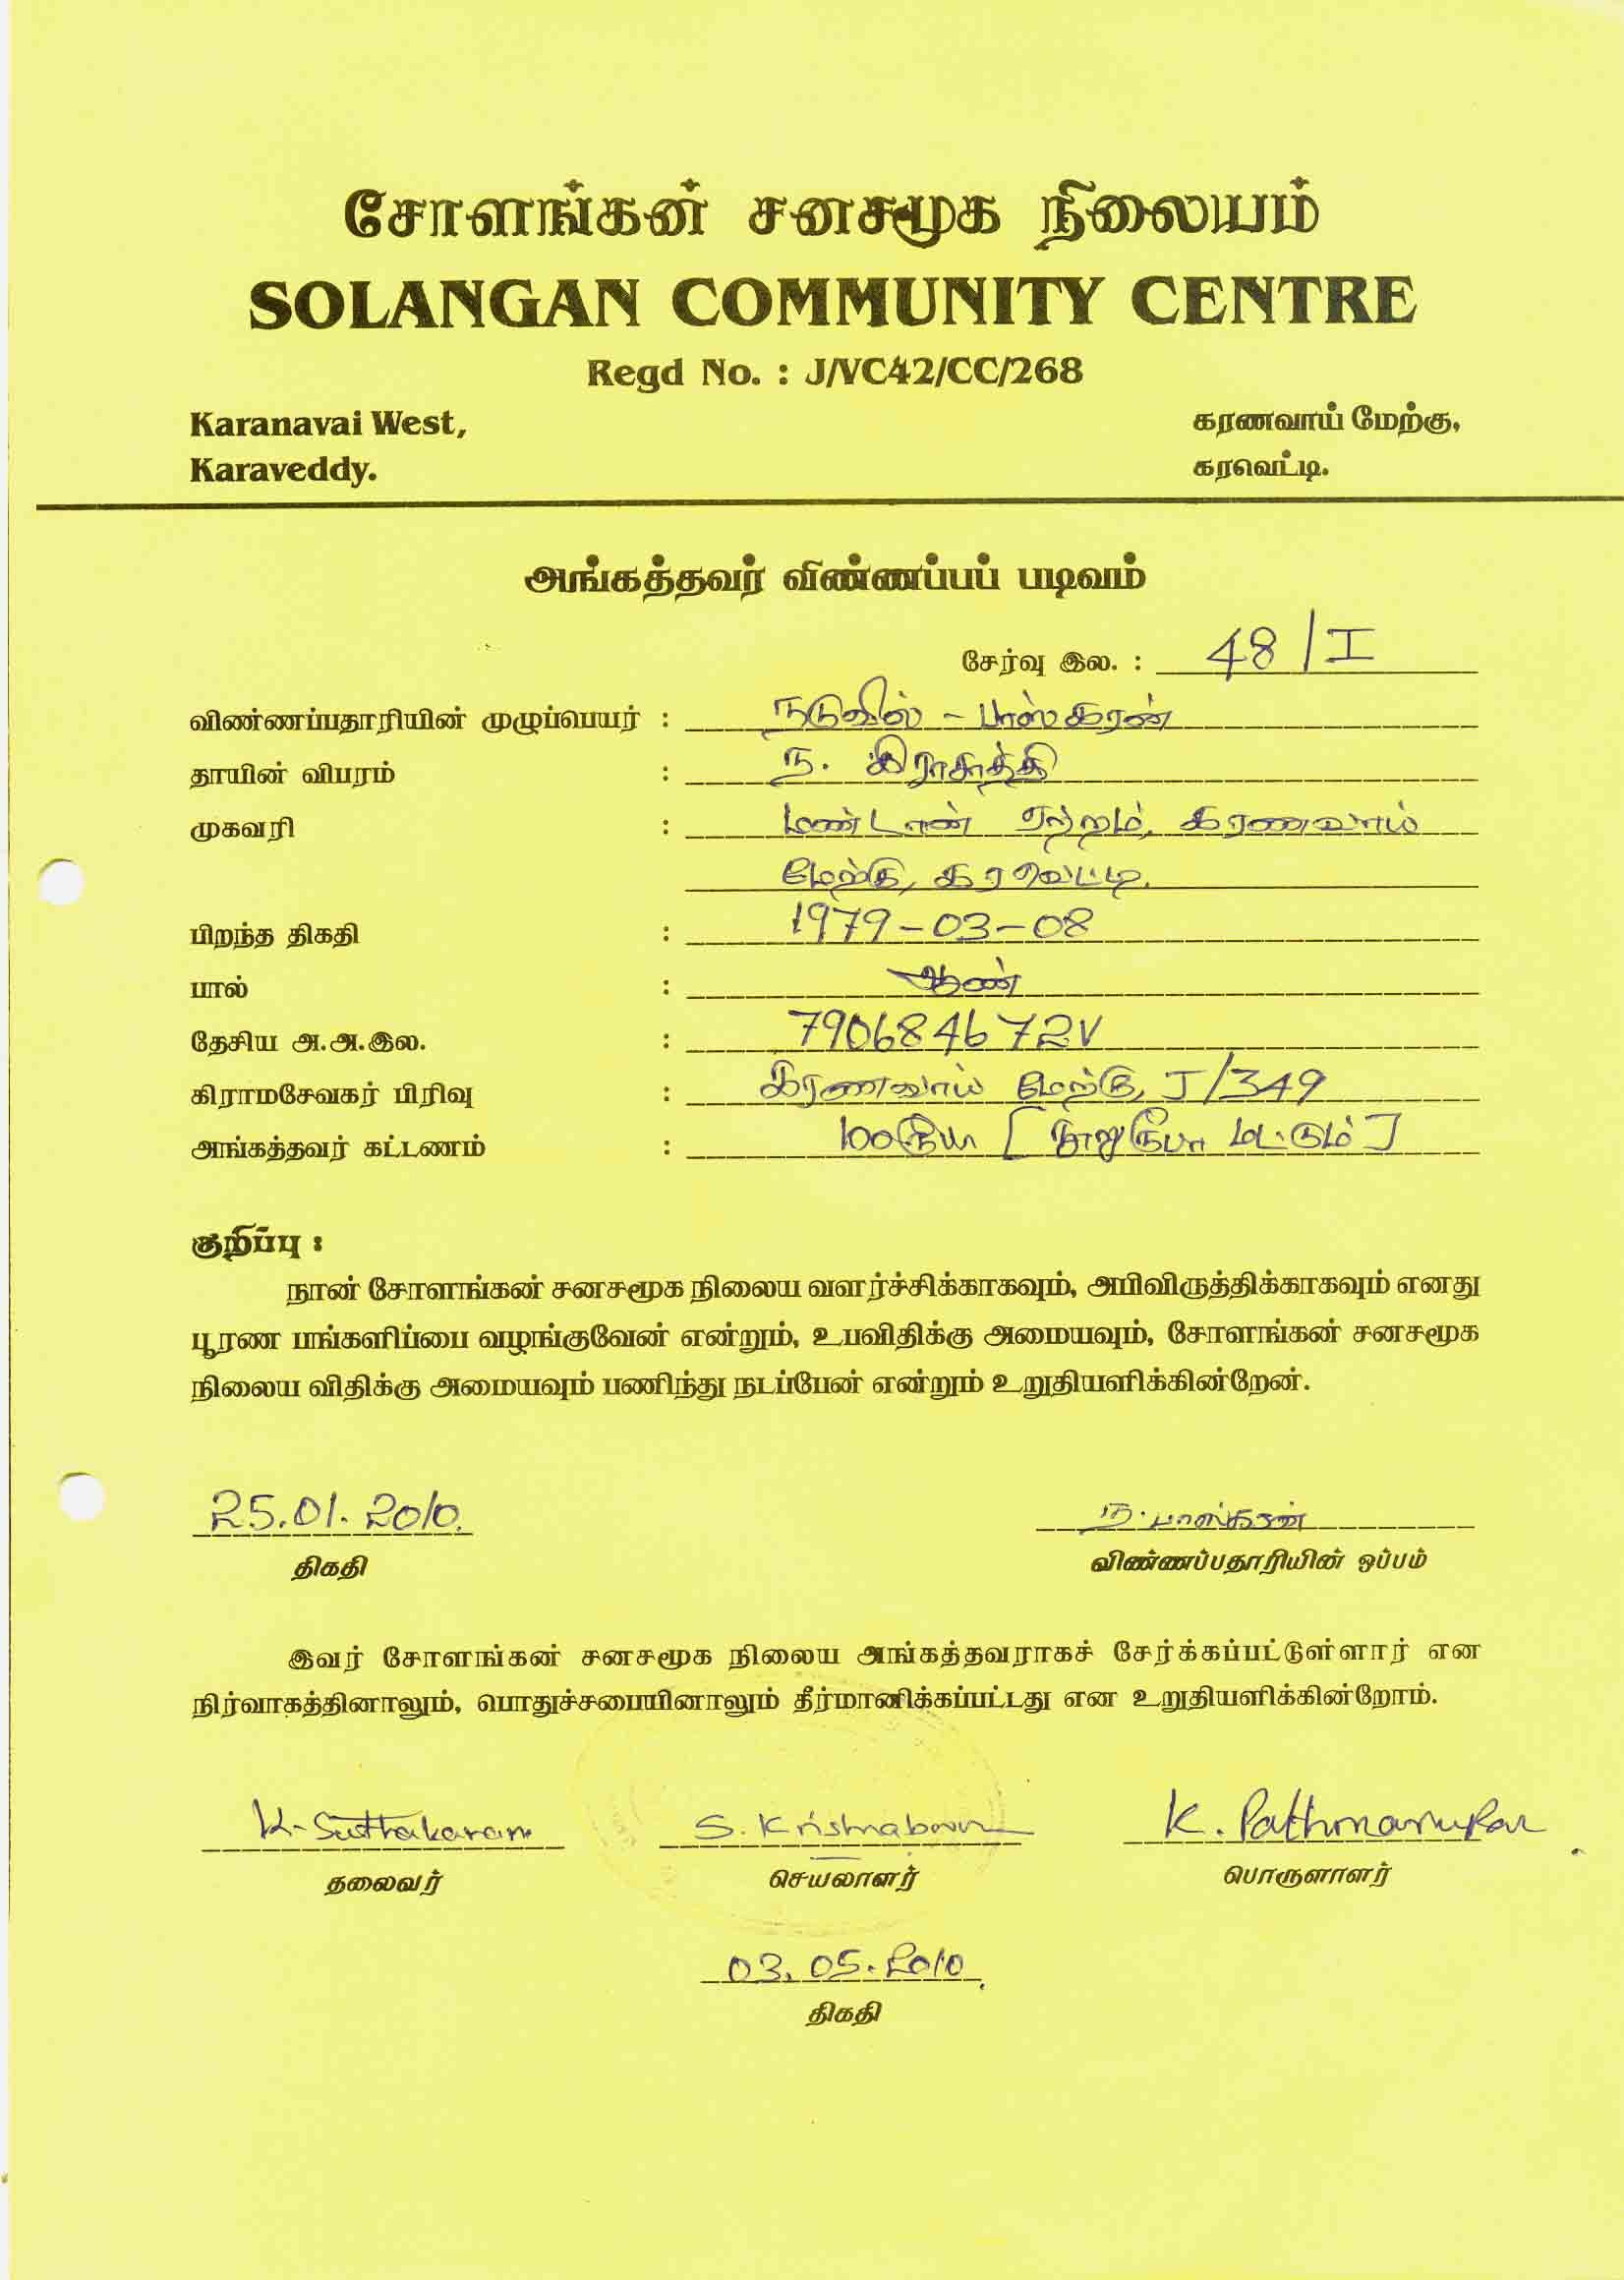 சோளங்கன் சனசமூக நிலையம்
SOLANGAN COMMUNITY CENTRE
Regd No. : J/VC42/CC/268
Karanavai West, கரணவாய் மேற்கு,
Karaveddy. கரவெட்டி.
அங்கத்தவர் விண்ணப்பப் படிவம்
சேர்வு இல. : 48/I
விண்ணப்பதாரியின் முழுப்பெயர் : நடுவில் - பாஸ்கரன்
தாயின் விபரம் : ந. இராசாத்தி
முகவரி : மண்டான் ஏற்றம், கரணவாய்
மேற்கு, கரவெட்டி.
பிறந்த திகதி : 1979-03-08
பால் : ஆண்
தேசிய அ.அ.இல. : 790684672V
கிராமசேவகர் பிரிவு : கரணவாய் மேற்கு, J/349
அங்கத்தவர் கட்டணம் : 100ரூபா [நூறுரூபா மட்டும்]
குறிப்பு :
நான் சோளங்கன் சனசமூக நிலைய வளர்ச்சிக்காகவும், அபிவிருத்திக்காகவும் எனது
பூரண பங்களிப்பை வழங்குவேன் என்றும், உபவிதிக்கு அமையவும், சோளங்கன் சனசமூக
நிலைய விதிக்கு அமையவும் பணிந்து நடப்பேன் என்றும் உறுதியளிக்கின்றேன்.
25.01.2010. ந.பாஸ்கரன்
திகதி விண்ணப்பதாரியின் ஒப்பம்
இவர் சோளங்கன் சனசமூக நிலைய அங்கத்தவராகச் சேர்க்கப்பட்டுள்ளார் என
நிர்வாகத்தினாலும், பொதுச்சபையினாலும் தீர்மானிக்கப்பட்டது என உறுதியளிக்கின்றோம்.
K. Suthakaran S. Krishnabavan K.
தலைவர் செயலாளர் பொருளாளர்
03.05.2010
திகதி